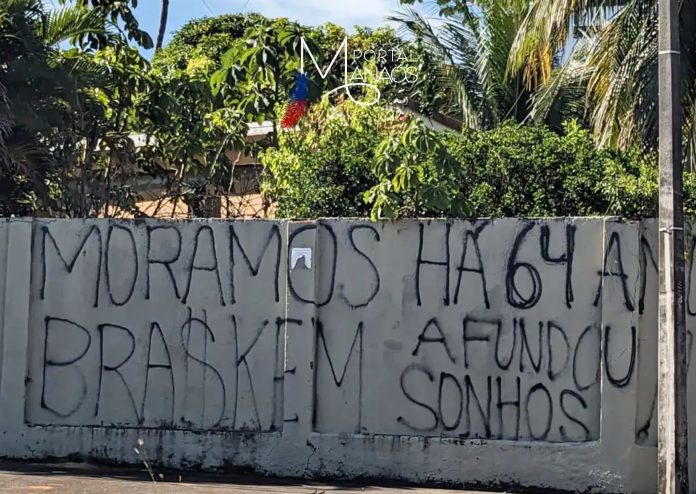 PORTAL
MANAÓS
MORAMOS HÁ 64 AN
BRA$KEM AFUNDOU
SONHOS